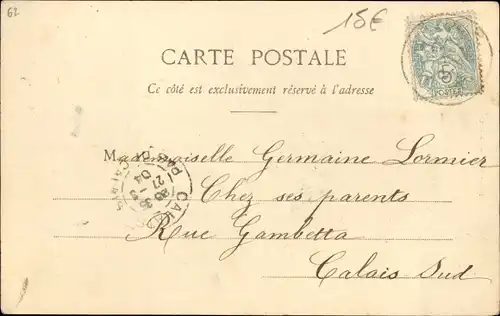 62
15€
CARTE POSTALE
Ce côté est exclusivement réservé à l'adresse
Mademoiselle Germaine Lormier
Chez ses parents
Rue Gambetta
Calais Sud